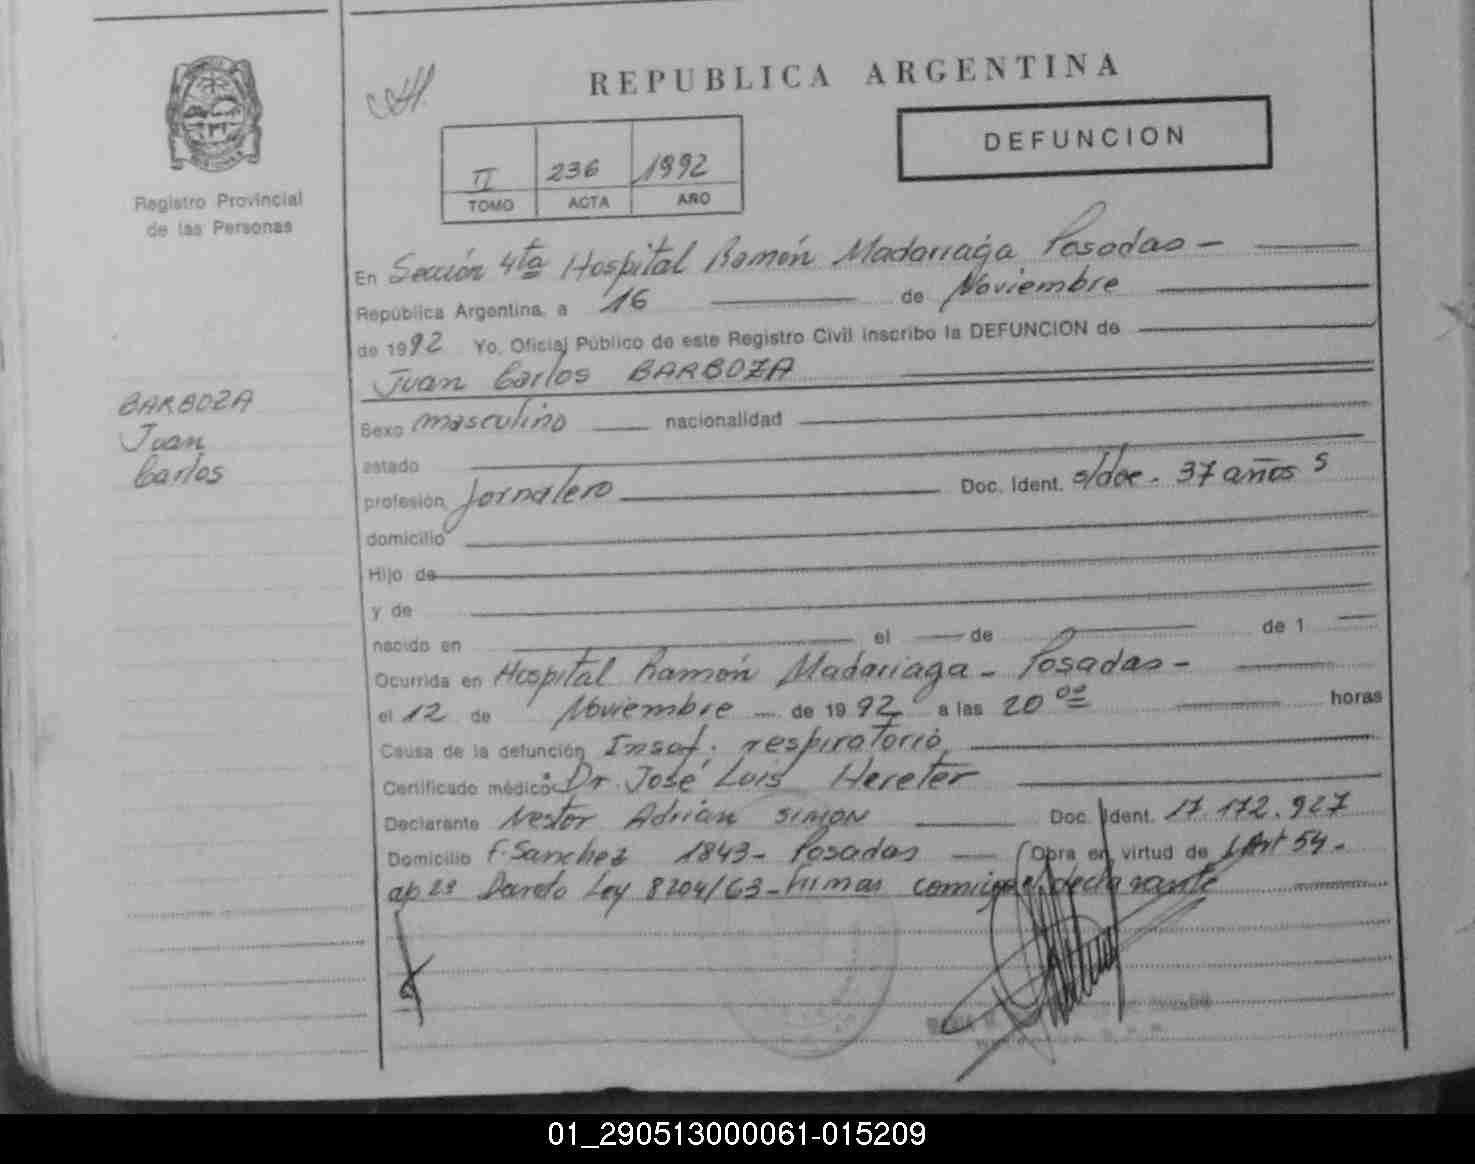 REPUBLICA ARGENTINA
DEFUNCION
II 236 1992
TOMO ACTA AÑO
Registro Provincial
de las Personas
En Sección 4ta Hospital Ramón Madariaga Posadas -
República Argentina, a 16 de Noviembre
de 1992 Yo, Oficial Público de este Registro Civil inscribo la DEFUNCION de
Juan Carlos BARBOZA
BARBOZA
Juan
Carlos
Sexo masculino nacionalidad
estado
profesión Jornalero Doc. Ident. s/doc. 37 años
domicilio
Hijo de
y de
nacido en el de de 1
Ocurrida en Hospital Ramón Madariaga - Posadas -
el 12 de Noviembre de 1992 a las 20 00 horas
Causa de la defunción Insuf. respiratorio
Certificado médico: Dr. José Luis Hereter
Declarante Nestor Adrián SIMON Doc. Ident. 17.172.927
Domicilio F. Sanchez 1843 - Posadas (Obra en virtud de Art 54 -
ap 2º Decreto Ley 8204/63 - Firmas conmigo el declarante
01_290513000061-015209